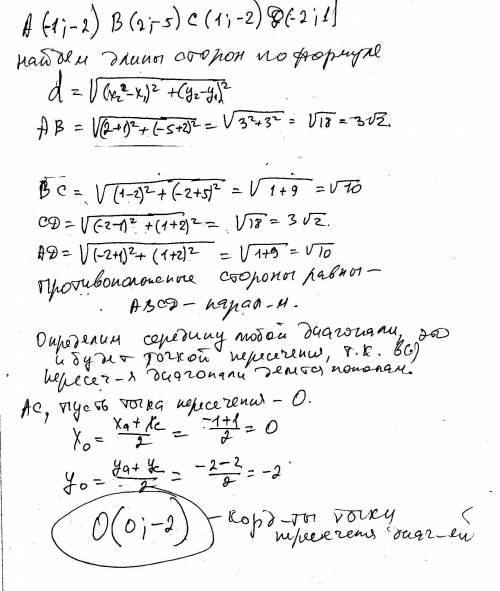 A (-1;-2) B (2;-5) C (1;-2) D(-2;1)
найдем длины сторон по формуле
d = √((x₂-x₁)² + (y₂-y₁)²)
AB = √((2+1)² + (-5+2)²) = √(3²+3²) = √18 = 3√2.
BC = √((1-2)² + (-2+5)²) = √(1+9) = √10
CD = √((-2-1)² + (1+2)²) = √18 = 3√2.
AD = √((-2+1)² + (1+2)²) = √(1+9) = √10
Противоположные стороны равны -
ABCD - парал-м.
Определим середину любой диагонали, это
и будет точкой пересечения, т.к. в(
пересеч-я диагонали делятся пополам.
AC, пусть точка пересечения - O.
x₀ = (xa + xc)/2 = (-1+1)/2 = 0
y₀ = (ya + yc)/2 = (-2-2)/2 = -2
O(0;-2) - коорд-ты точки
пересечения диаг-ей